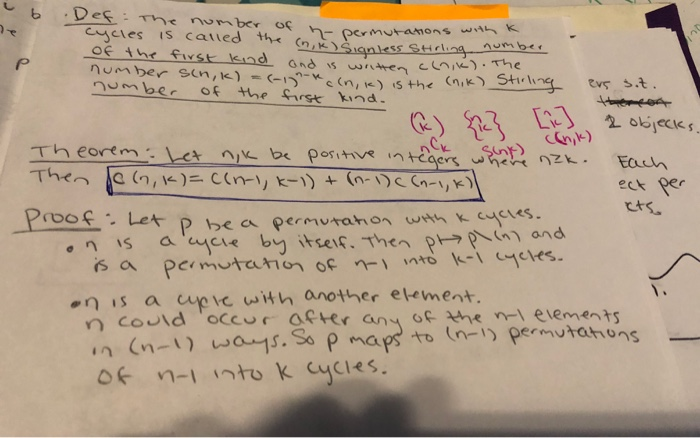 Def: The number of n-permutations with k
cycles is called the (n,k) Signless Stirling number
of the first kind and is written c(n,k). The
number s(n,k) = (-1)^{n-k} c(n,k) is the (n,k) Stirling
number of the first kind.
ers s.t.
2 objects.
(n k) {n k} [n k]
nCk S(n,k) c(n,k)
Theorem: Let n,k be positive integers where n≥k.
Each
Then c(n,k) = c(n-1, k-1) + (n-1) c(n-1, k)
ect per
cts.
Proof: Let p be a permutation with k cycles.
• n is a cycle by itself. Then p↦p\(n) and
is a permutation of n-1 into k-1 cycles.
• n is a cycle with another element.
n could occur after any of the n-1 elements
in (n-1) ways. So p maps to (n-1) permutations
of n-1 into k cycles.